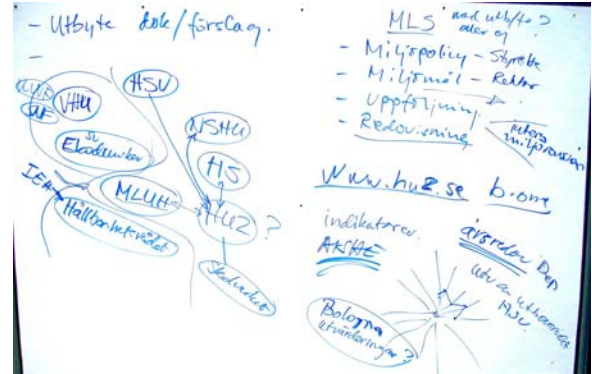 - Utbyte dok/förslag.
-
HSV
VHU
NSHU
Ekodemiker
HS
IEH
MLUH
HU2 ?
Hållbarhetsrådet
Skolverket
MLS
med utbyte ?
eller ej
- Miljöpolicy - Styrelse
- Miljömål - Rektor
- Uppföljning
- Redovisning
intern
miljörevision
www.hu2.se
indikatorer.
AISHE
årsredov Dep
HSV
Bologna
utvärderingar ?